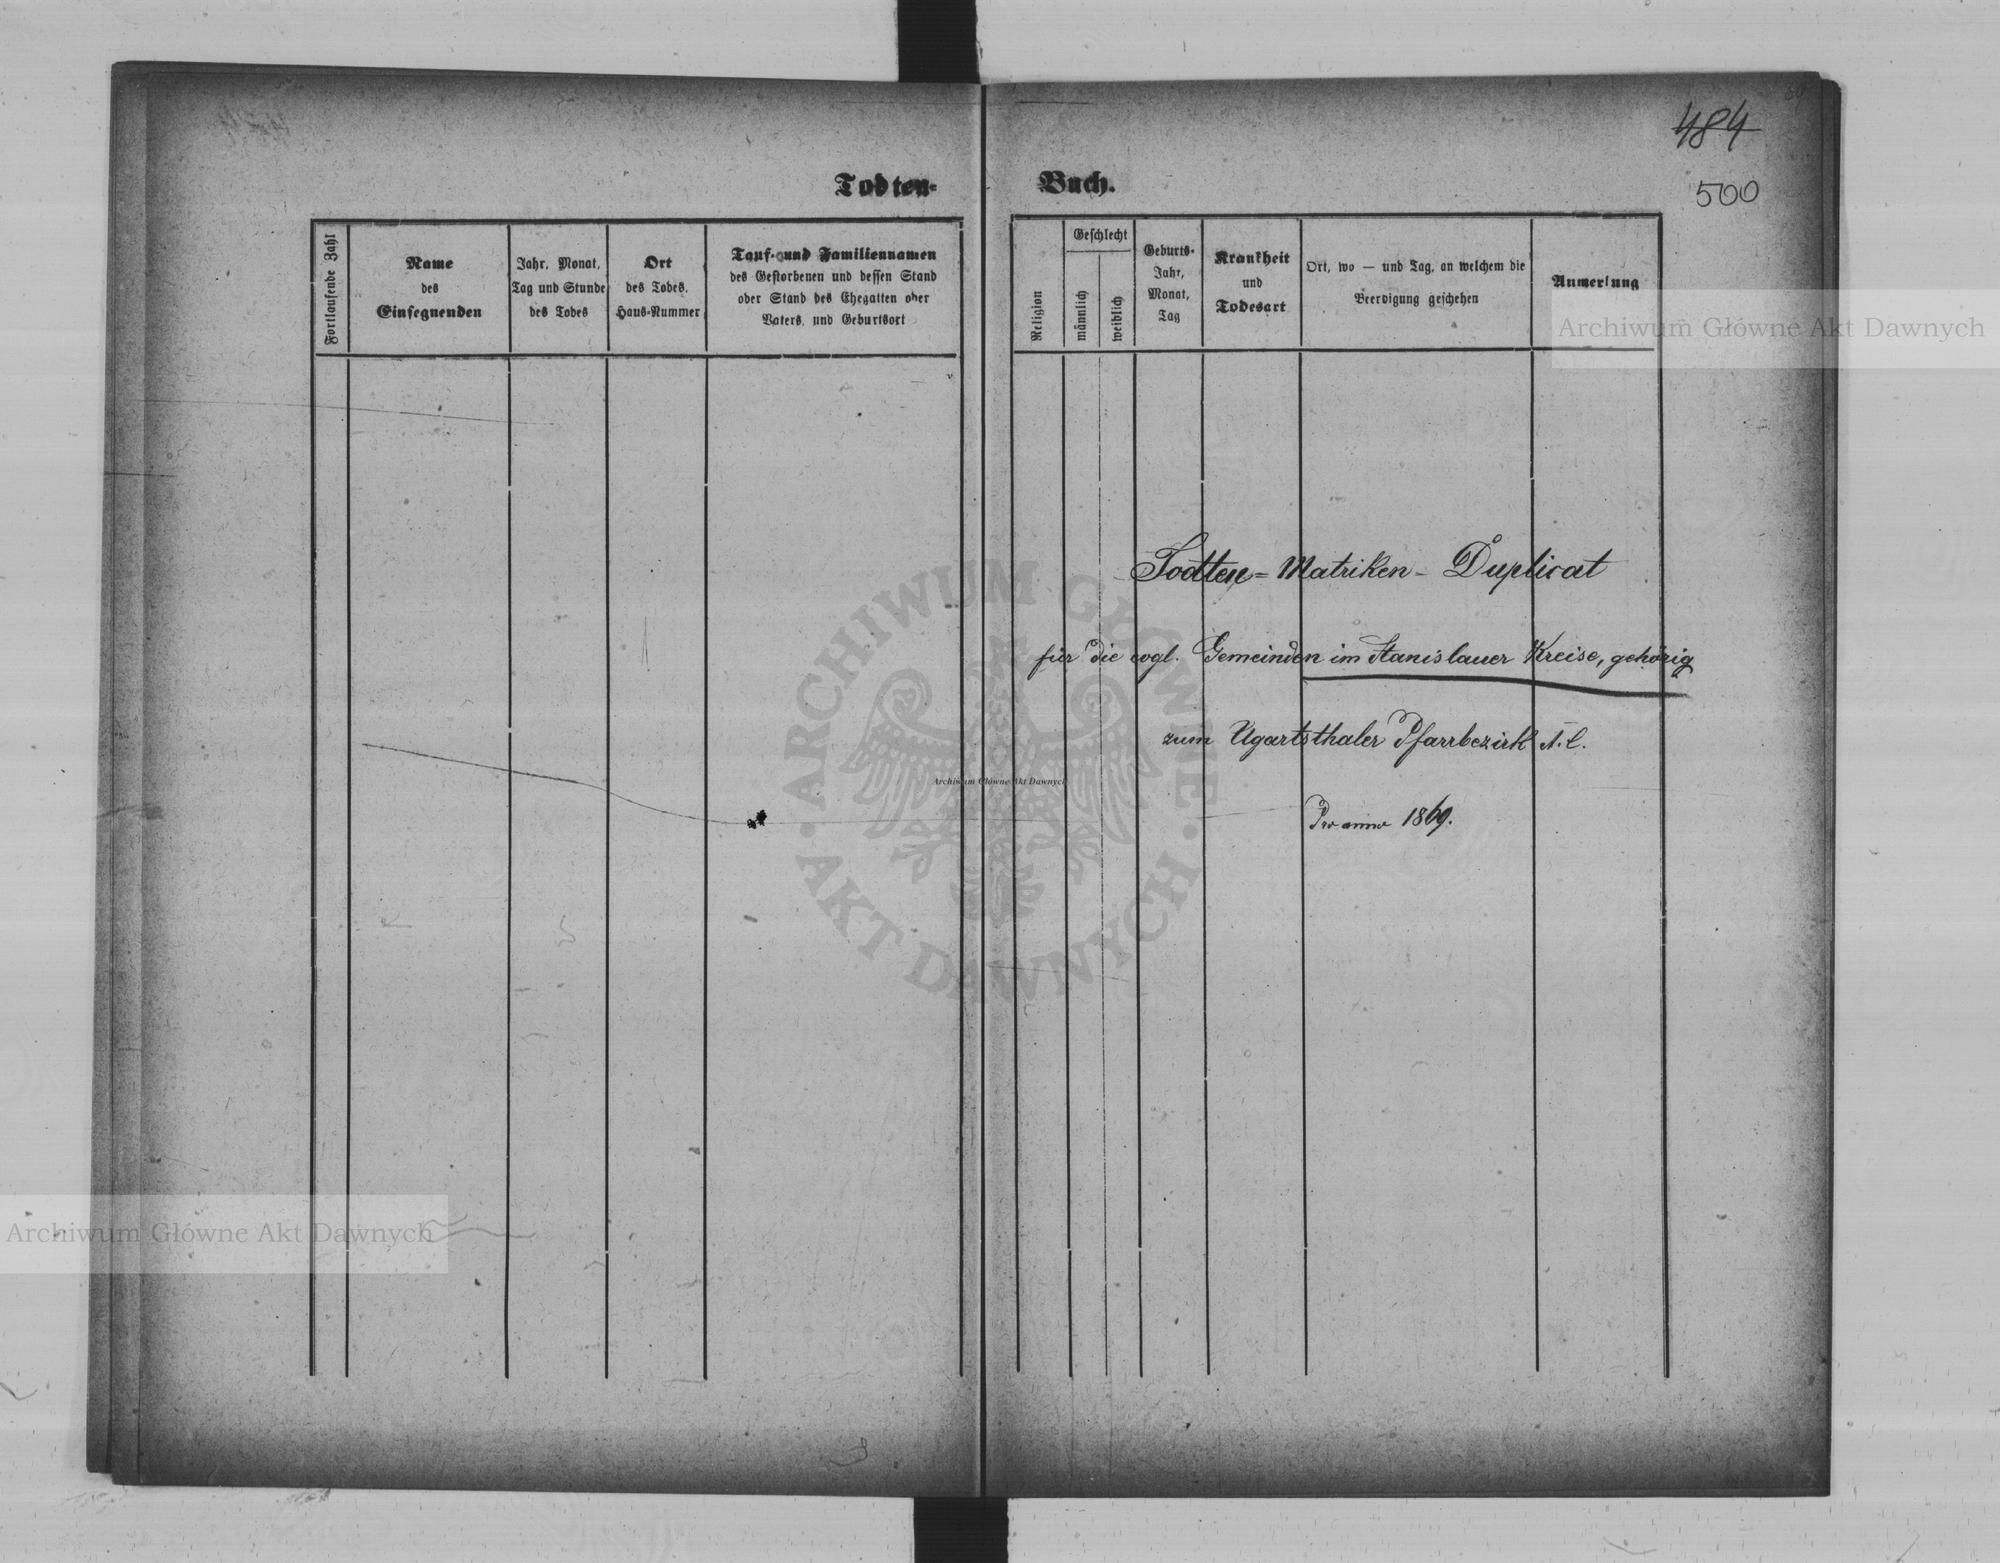 484
500
Todten-
Buch.
Fortlaufende Zahl
Name
des
Einsegnenden
Jahr, Monat,
Tag und Stunde
des Todes
Ort
des Todes,
Haus-Nummer
Tauf- und Familiennamen
des Gestorbenen und dessen Stand
oder Stand des Ehegatten oder
Vaters, und Geburtsort
Religion
Geschlecht
männlich
weiblich
Geburts-
Jahr,
Monat,
Tag
Krankheit
und
Todesart
Ort, wo — und Tag, an welchem die
Beerdigung geschehen
Anmerkung
Todten = Matriken - Duplicat
für die evgl. Gemeinden im Stanislauer Kreise, gehörig
zum Ugartsthaler Pfarrbezirk A. C.
Pro anno 1869.
Archiwum Główne Akt Dawnych
ARCHIWUM GŁÓWNE
AKT DAWNYCH
Archiwum Główne Akt Dawnych
Archiwum Główne Akt Dawnych